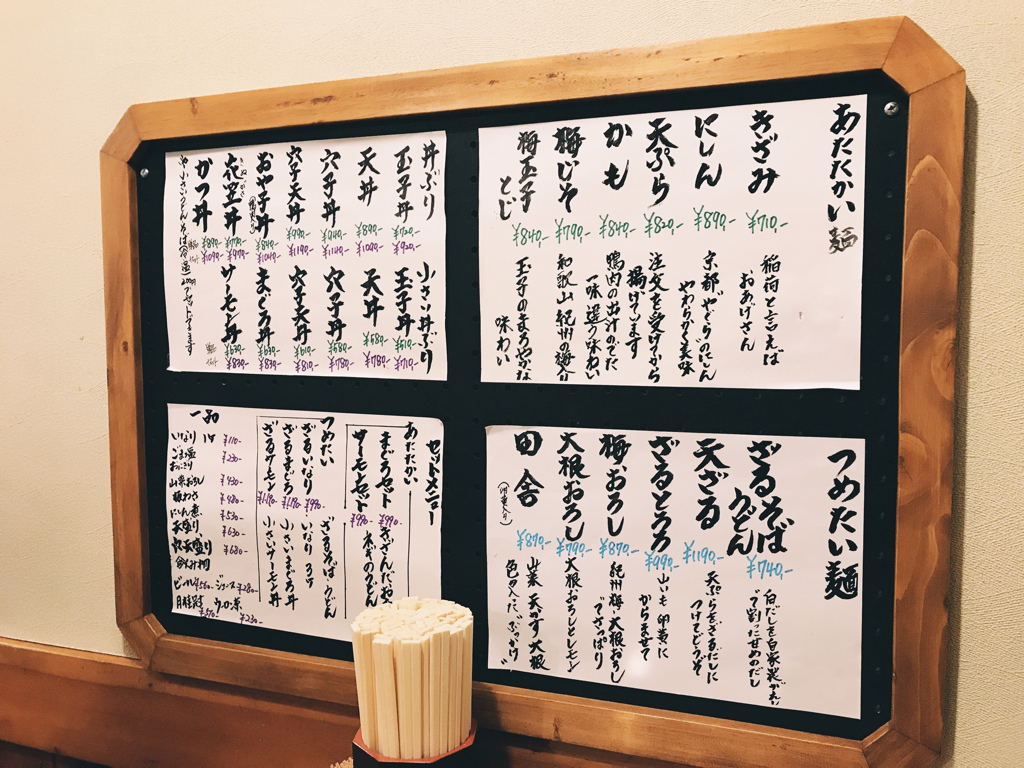 あたたかい麺
きざみ ¥710-
稲荷と言えば
おあげさん
にしん ¥890-
京都やぐらのにしん
やわらかく美味
天ぷら ¥820-
注文を受けてから
揚げてます
かも ¥840-
鴨肉の出汁のでた
一味違う味わい
梅じそ ¥790-
和歌山紀州の梅
梅玉子とじ ¥840-
玉子のまろやかな
味わい
丼ぶり
玉子丼 ¥720- ¥920-
天丼 ¥1090-
穴子丼 ¥1140-
穴子天丼 ¥990- ¥1190-
おやこ丼 ¥840- ¥1040-
衣笠丼 ¥770- ¥970-
きぬがさ
かつ丼 ¥890- ¥1090-
小さい丼ぶり
玉子丼 ¥510- ¥710-
天丼 ¥580- ¥780-
穴子丼 ¥580- ¥780-
穴子天丼 ¥610- ¥810-
まぐろ丼 ¥630- ¥830-
サーモン丼 ¥630- ¥830-
つめたい麺
ざるそば
うどん ¥740-
白だしを自家製がえし
で割った甘めのだし
天ざる ¥1190-
天ぷらをざるだしに
つけてどうぞ
ざるとろろ ¥990-
山いも 卵黄に
からませて
梅おろし ¥870-
紀州梅と大根おろし
でさっぱり
大根おろし ¥790-
大根おろしとレモン
田舎 ¥870-
山菜 天かす 大根
色々入った"ぶっかけ"
セットメニュー
あたたかい
まぐろセット ¥990-
サーモンセット ¥990-
きざみんだお
木の葉のうどん
つめたい
ざるいなり ¥990-
ざるまぐろ ¥1190-
ざるサーモン ¥1190-
ざるそば うどん
いなり 3ケ
小さいまぐろ丼
小さいサーモン丼
一品
いなり 1ケ ¥110-
ごま塩
おにぎり ¥230-
山菜おろし ¥430-
板わさ ¥480-
にしん煮 ¥530-
天盛り ¥630-
穴天盛り ¥680-
ビール ¥560- ジュース ¥280-
月桂冠 ¥570-
ウーロン茶 ¥230-